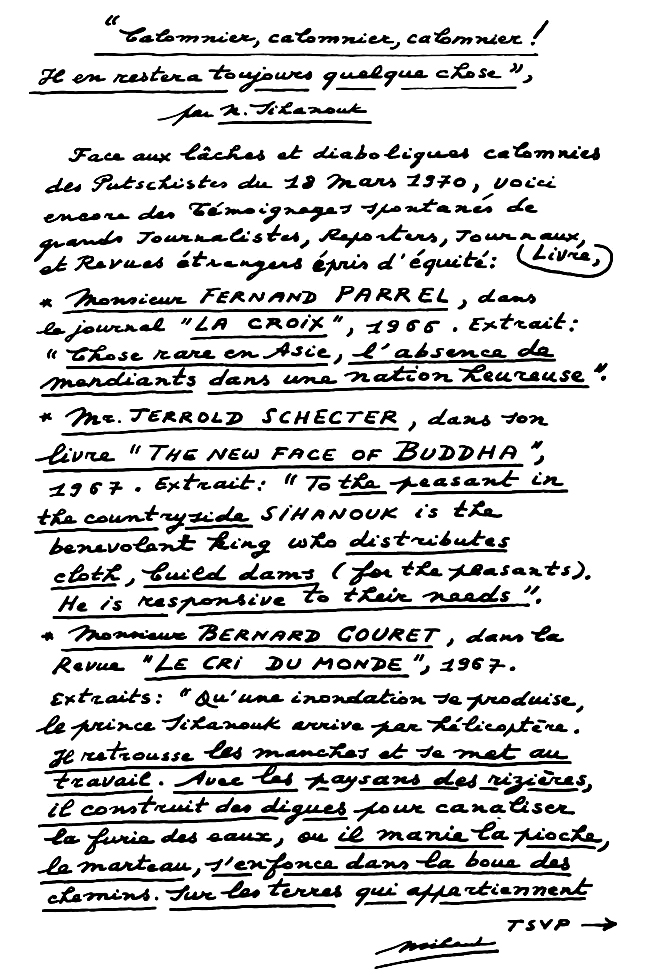 "Calomnier, calomnier, calomnier !
Il en restera toujours quelque chose",
par N. Sihanouk
Face aux lâches et diaboliques calomnies
des Putschistes du 18 Mars 1970, voici
encore des Témoignages spontanés de
grands Journalistes, Reporters, Journaux,
et Revues étrangers épris d'équité : (Livre,)
* Monsieur FERNAND PARREL, dans
le journal "LA CROIX", 1966. Extrait :
"Chose rare en Asie, l'absence de
mendiants dans une nation heureuse".
* Mr. JERROLD SCHECTER, dans son
livre "THE NEW FACE OF BUDDHA",
1967. Extrait : "To the peasant in
the countryside SIHANOUK is the
benevolent king who distributes
cloth, build dams (for the peasants).
He is responsive to their needs".
* Monsieur BERNARD COURET, dans la
Revue "LE CRI DU MONDE", 1967.
Extraits : "Qu'une inondation se produise,
le prince Sihanouk arrive par hélicoptère.
Il retrousse les manches et se met au
travail. Avec les paysans des rizières,
il construit des digues pour canaliser
la furie des eaux, ou il manie la pioche,
le marteau, s'enfonce dans la boue des
chemins. Sur les terres qui appartiennent
TSVP →